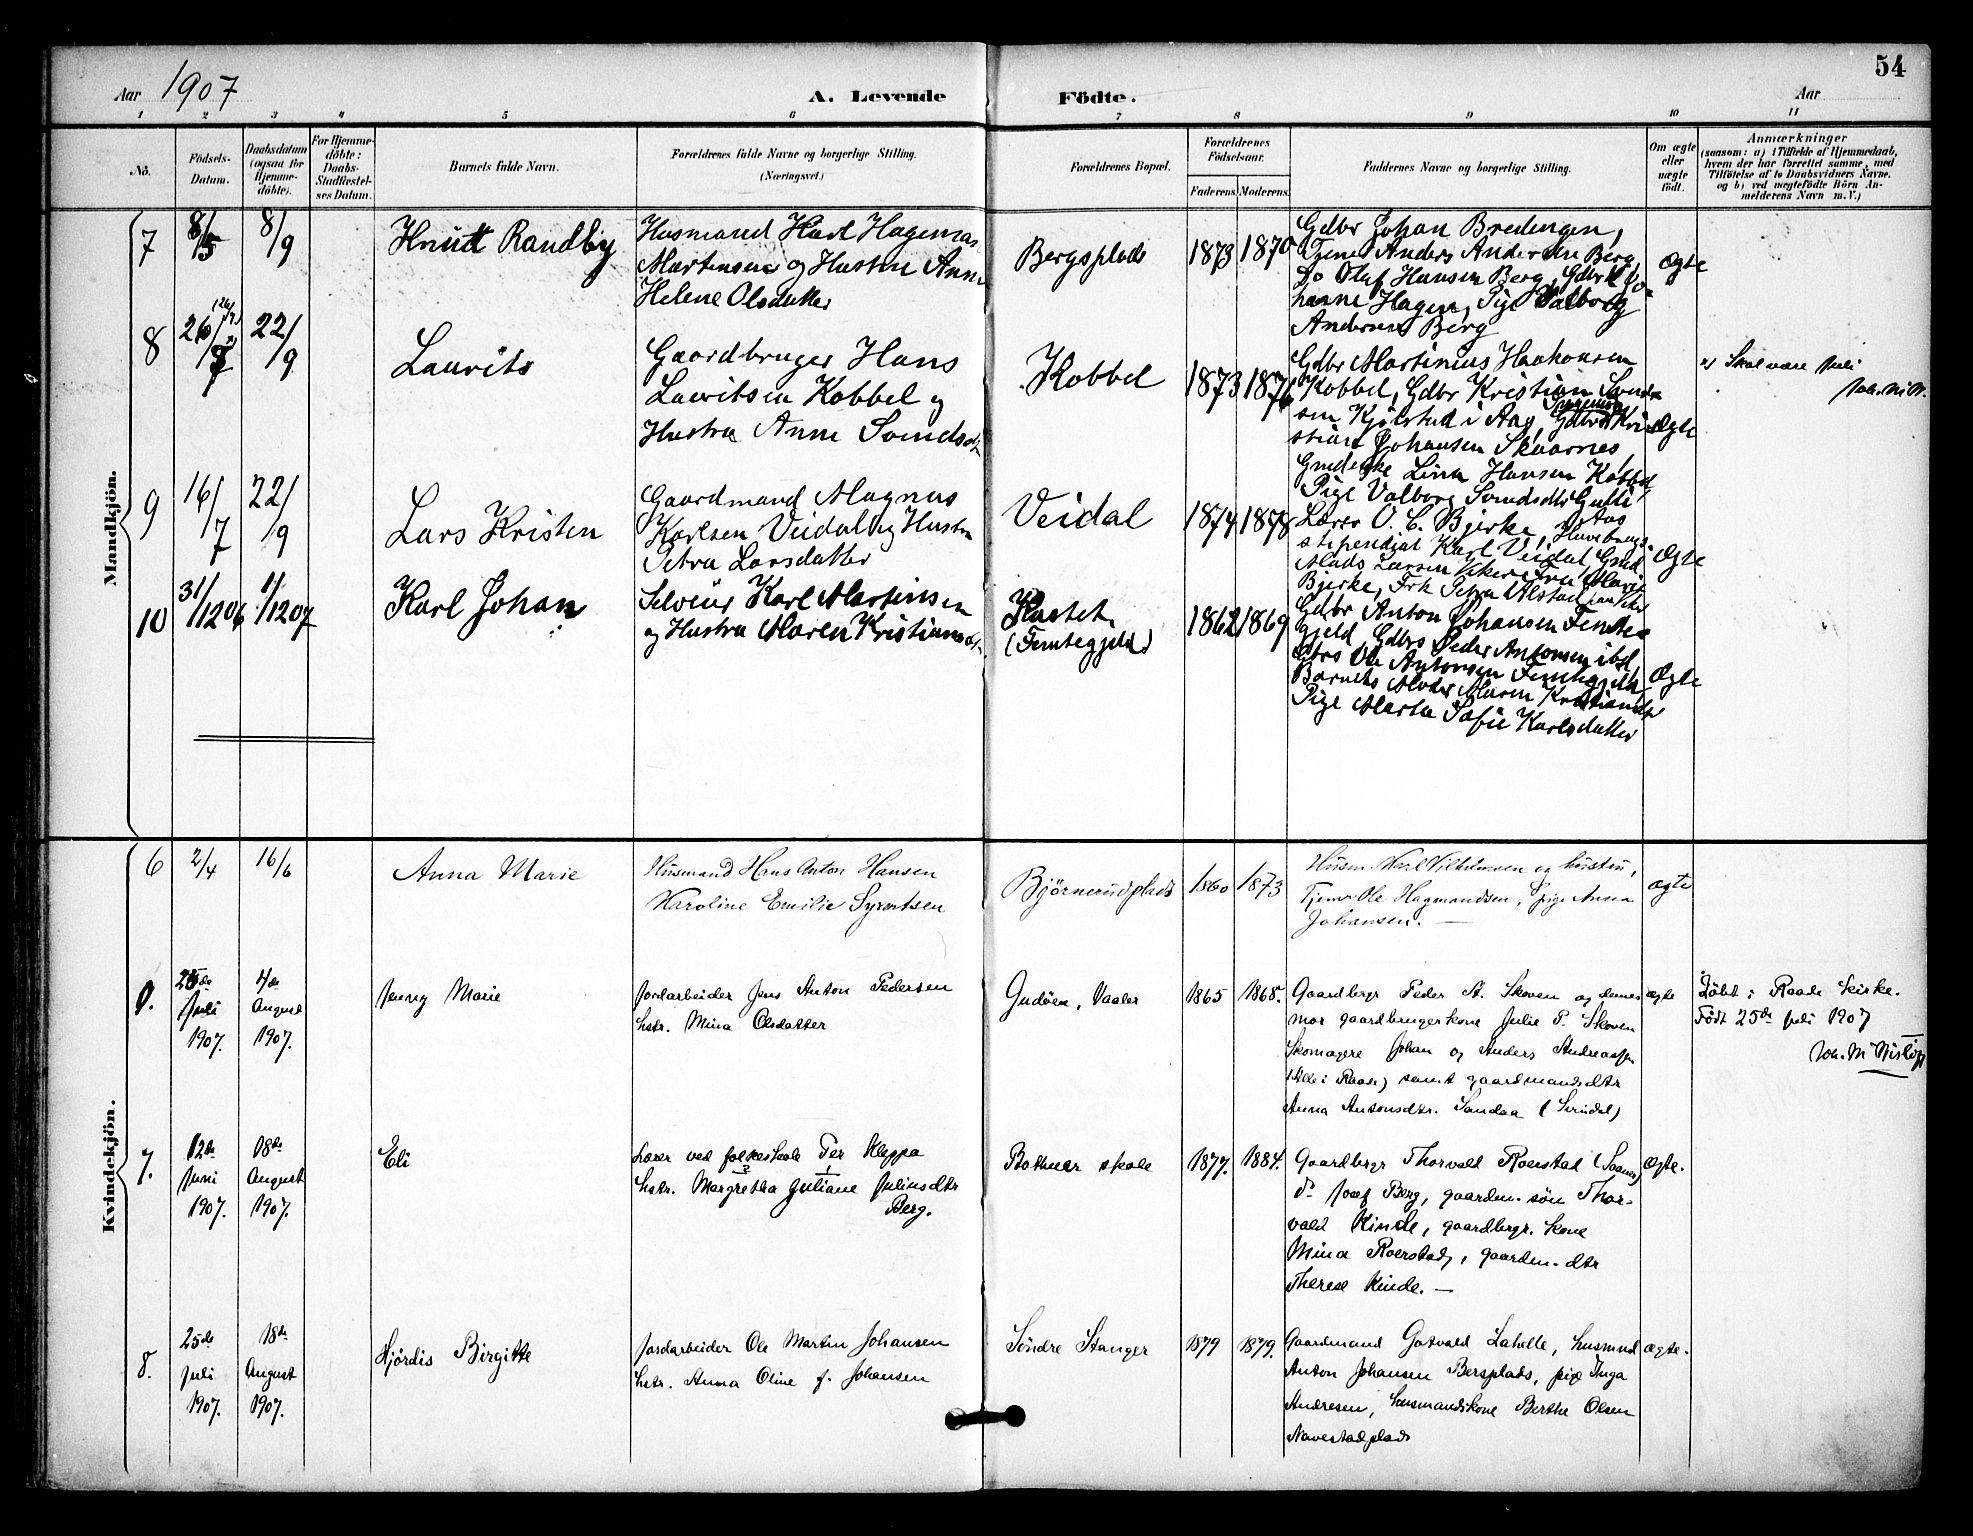 54
Aar 1907
A. Levende Födte.
Aar
1 2 3 4 5 6 7 8 9 10 11
No.
Födsels-
Datum.
Daabsdatum
(ogsaa for
Hjemme-
döbte).
For Hjemme-
döbte:
Daabs-
Stadfæstel-
ses Datum.
Barnets fulde Navn.
Forældrenes fulde Navne og borgerlige Stilling.
(Næringsvei.)
Forældrenes Bopæl.
Forældrenes
Födselsaar.
Faderens. Moderens.
Faddernes Navne og borgerlige Stilling.
Om ægte
eller
uægte
födt.
Anmærkninger
(saasom: a) i Tilfælde af Hjemmedaab,
hvem der har forrettet samme, med
Tilföielse af to Daabsvidners Navne.
og b) ved uægtefödte Börn An-
melderens Navn m. V.)
Mandkjön.
7
8/5
8/9
Knut Randby
Husmand Karl Hageman
Martinsen og Hustru Anne
Helene Olsdatter
Bergsplads
1873 1870
Gdbr Johan Bredengen,
Tjener Anders Andersen Berg,
Do Olaf Hansen Berg, Gdbrk Jo-
hanne Hagen, Pige Valborg
Andersen Berg
Ægte
8
26/7
22/9
Laurits
Gaardbruger Hans
Lauritsen Kobbel og
Hustru Anne Svendsdt.
Kobbel
1873 1876
Gdbr Martinius Haakonsen
Kobbel, Gdbr Kristian Svend-
sen Kjölstad i Aas, Gdbr Kri-
stian Johansen Skaarnes,
Lina Hansen Kobbel,
Pige Valborg Svendsdtr
Aas
Ægte
Skal være Juli
9
16/7
22/9
Lars Kristen
Gaardmand Magnus
Karlsen Veidal og Hustru
Petra Larsdatter
Veidal
1874 1878
Lærer O. C. Bjerke,
stipendiat Karl Veidal, Gmd
Mads Larsen Fru Marie
Bjerke, Frk Petra Alstad
Ægte
10
31/12 06
1/12 07
Karl Johan
Selveier Karl Martinsen
og Hustru Maren Kristiansdt.
Kastet
(Femtegjeld)
1862 1869
Gdbr Anton Johansen Femte-
gjeld, Gdbrs Peder Antonsen ibd,
Gbrs Ole Antonsen Femtegjeld,
Barnets Moder Maren Kristiansdtr
Pige Marta Sofie Karlsdatter
Ægte
Kvindekjön.
6
2/4
16/6
Anna Marie
Husmand Hans Anton Hansen
Karoline Emilie Syvertsen
Björnerudplads
1860 1873
Husm. Karl Vilhelmsen og hustru,
Tjener Ole Hagmandsen, Pige Anna
Johansen. —
ægte
25de
Juli
1907.
4de
August
1907.
Jenny Marie
Jordarbeider Jens Anton Pedersen
hstr. Mina Olsdatter
Gudöen, Vaaler
1865 1868.
Gaardbrgr Peder A. Skoven og dennes
mor gaardbrugerkone Julie P. Skoven
Skomagere Johan og Anders Andreassen
i Raade) samt gaardmandsdtr
Anna Antonsdtr. Sandaa (Svindal)
ægte
Döbt i Raade kirke.
Födt 25de Juli 1907
7.
12de
Juni
1907.
18de
August
1907.
Eli
Lærer ved folkeskole Per Kleppa
hstr. Margretha Juliane Juliusdtr
Berg.
Botner skole
1877. 1884.
Gaardbrgr Thorvald Roerstad (Saaner)
do Josef Berg, gaardm. sön Thor-
vald Kinde, gaardbrgr. kone
Mina Roerstad, gaardm. dtr
Therese Kinde. —
ægte.
8.
25de
Juli
1907.
18de
August
1907.
Hjördis Birgitte
Jordarbeider Ole Martin Johansen
hstr. Anna Oline f. Johansen
Söndre Stanger
1879 1879.
Gaardmand Gotvald Lahelle, husmnd
Anton Johansen Bersplads, pige Inga
Andresen, husmandskone Berthe Olsen
Navestadplads
ægte.